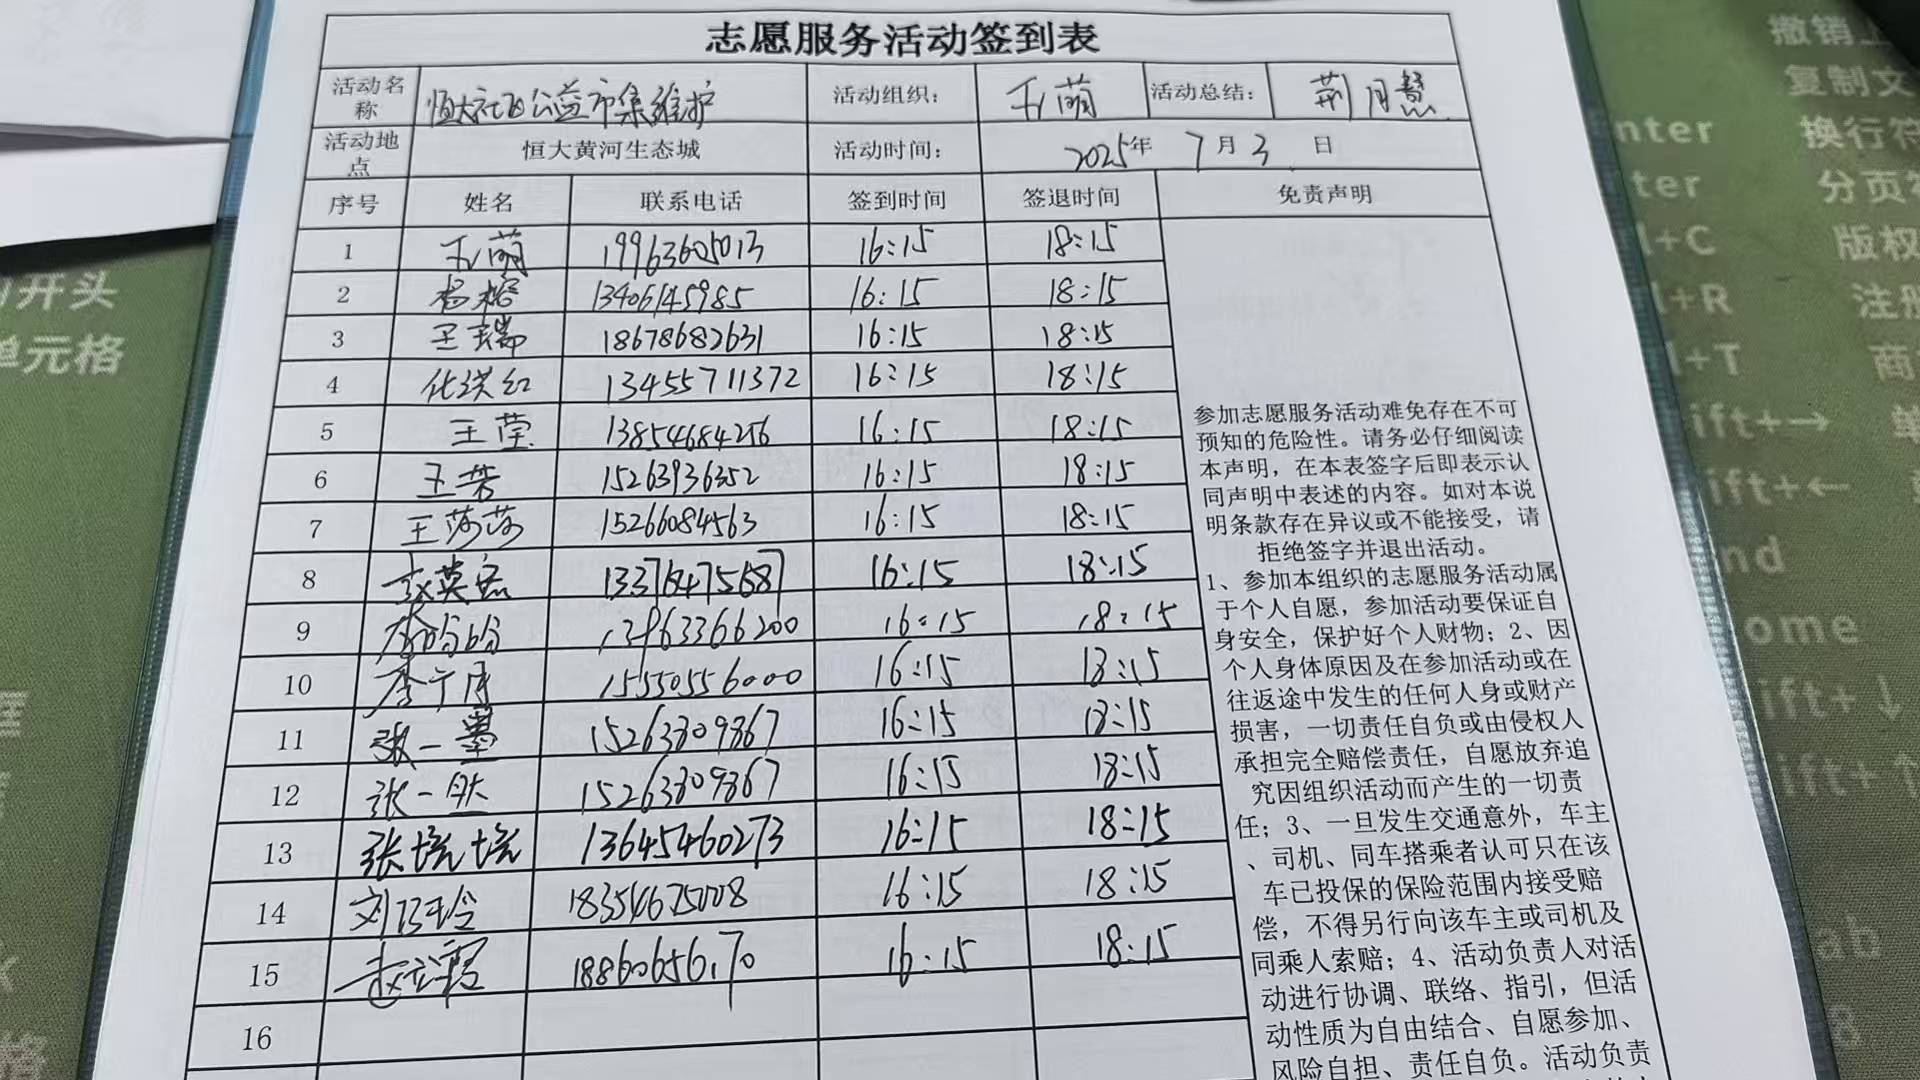 志愿服务活动签到表
活动名称 恒大社区公益市集维护 活动组织： 王萌 活动总结： 荆月慧
活动地点 恒大黄河生态城 活动时间： 2025年 7月3 日
序号 姓名 联系电话 签到时间 签退时间 免责声明
1 王萌 19963605013 16:15 18:15
2 杨榕 13406145985 16:15 18:15
3 王瑞 18678682631 16:15 18:15
4 化洪红 13455711372 16:15 18:15
5 王莹 13854684256 16:15 18:15
6 王芳 15263936352 16:15 18:15
7 王莎莎 15266084563 16:15 18:15
8 英 13376475687 16:15 18:15
9 李哈哈 13963366200 16:15 18:15
10 李宁 15550556000 16:15 18:15
11 张一墨 15263809867 16:15 18:15
12 张一 15263809867 16:15 18:15
13 张培培 13645460273 16:15 18:15
14 刘巧玲 18354675008 16:15 18:15
15 赵霞 18860656170 16:15 18:15
16
参加志愿服务活动难免存在不可
预知的危险性。请务必仔细阅读
本声明，在本表签字后即表示认
同声明中表述的内容。如对本说
明条款存在异议或不能接受，请
拒绝签字并退出活动。
1、参加本组织的志愿服务活动属
于个人自愿，参加活动要保证自
身安全，保护好个人财物；2、因
个人身体原因及在参加活动或在
往返途中发生的任何人身或财产
损害，一切责任自负或由侵权人
承担完全赔偿责任，自愿放弃追
究因组织活动而产生的一切责
任；3、一旦发生交通意外，车主
、司机、同车搭乘者认可只在该
车已投保的保险范围内接受赔
偿，不得另行向该车主或司机及
同乘人索赔；4、活动负责人对活
动进行协调、联络、指引，但活
动性质为自由结合、自愿参加、
风险自担、责任自负。活动负责
开头
单元格
撤销上
复制文
nter 换行符
ter 分页
l+C 版权
l+R 注册
l+T 商
ift+→ 单
ift+←
nd
ome
ift+↓
ift+↑
ab
8
格